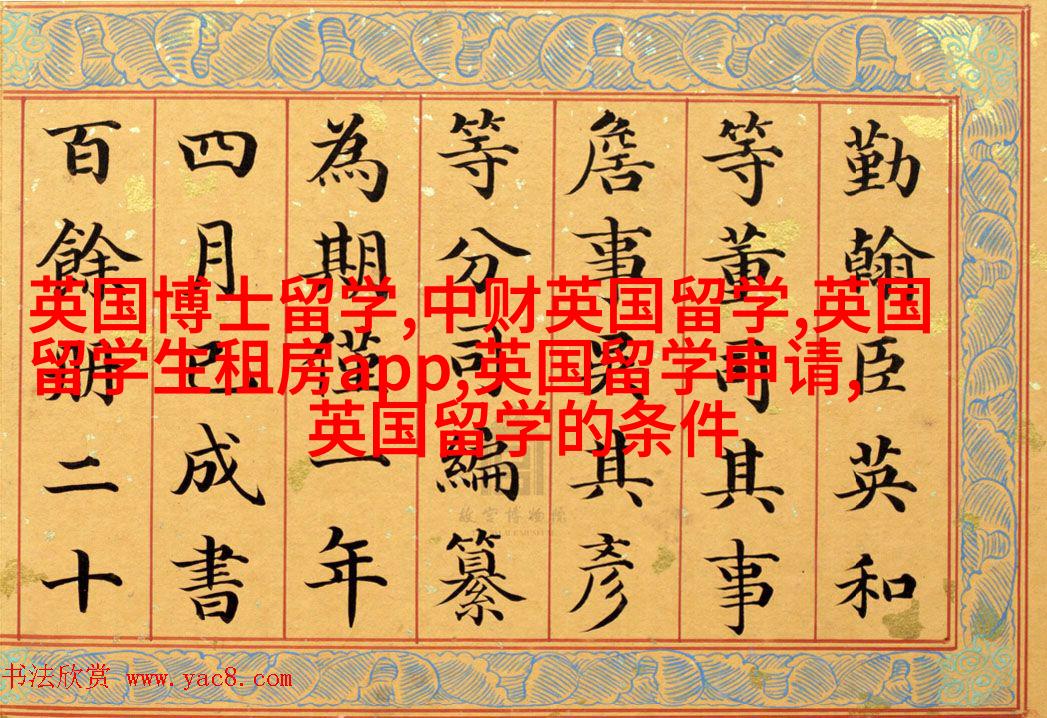 勤翰臣英和
等董司其事
詹事吳其彥
等分司編纂
為期僅一年
四月已成書
百餘册二十
英国博士留学,中财英国留学,英国
留学生租房app,英国留学申请,
英国留学的条件
故宫博物院
书法欣赏 www.yac8.com